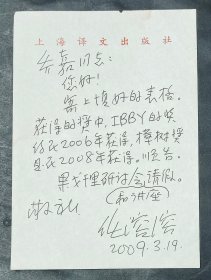 上海译文出版社
乔嘉同志:
您好!
寄上填好的表格。
获得的奖中,IBBY的奖
约在2006年获得,樟树奖
是在2008年获得。顺告。
果戈里研讨会请假。
(和讲座)
敬礼
任溶溶
2009.3.19.